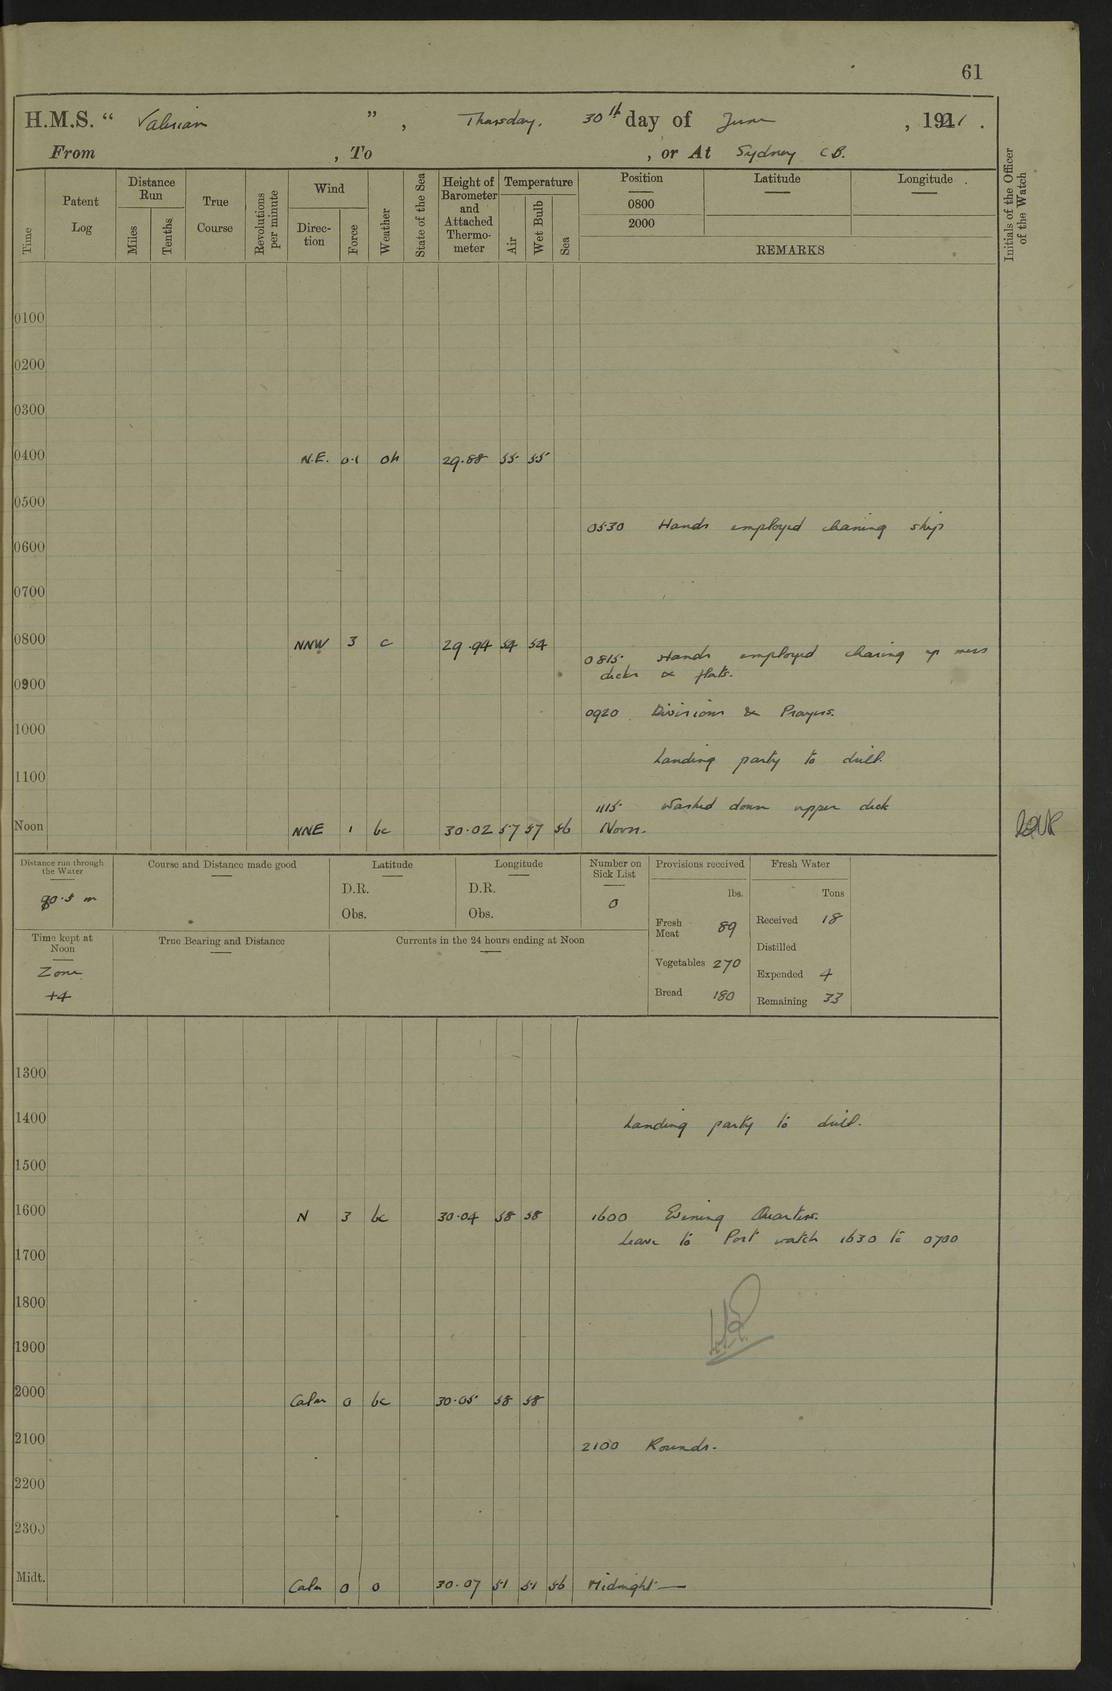 61
H.M.S. “ Valerian ” , Thursday. 30th day of June , 1921 .
From , To , or At Sydney C.B.
Time
Patent Log
Distance Run
Miles
Tenths
True Course
Revolutions per minute
Wind
Direction
Force
Weather
State of the Sea
Height of Barometer and Attached Thermometer
Temperature
Air
Wet Bulb
Sea
Position
0800
2000
Latitude
Longitude
REMARKS
Initials of the Officer of the Watch
0100
0200
0300
0400 N.E. 0.1 oh 29.88 55 55
0500
0530 Hands employed cleaning ship
0600
0700
0800 NNW 3 c 29.94 54 54
0815 Hands employed cleaning up mess
decks & flats.
0900
0920 Divisions & Prayers.
1000
Landing party to drill.
1100
1115 Washed down upper deck
Noon NNE 1 bc 30.02 57 57 56 Noon.
Distance run through the Water
Course and Distance made good
Latitude
D.R.
Obs.
Longitude
D.R.
Obs.
Number on Sick List
0
Provisions received
lbs.
Fresh Meat 89
Vegetables 270
Bread 180
Fresh Water
Tons
Received 18
Distilled
Expended 4
Remaining 33
Time kept at Noon
Zone
+4
True Bearing and Distance
Currents in the 24 hours ending at Noon
1300
1400
Landing party to drill.
1500
1600 N 3 bc 30.04 58 58 1600 Evening Quarters.
Leave to Port watch 1630 to 0700
1700
1800
1900
2000 Calm 0 bc 30.05 58 58
2100 2100 Rounds.
2200
2300
Midt. Calm 0 o 30.07 51 51 56 Midnight